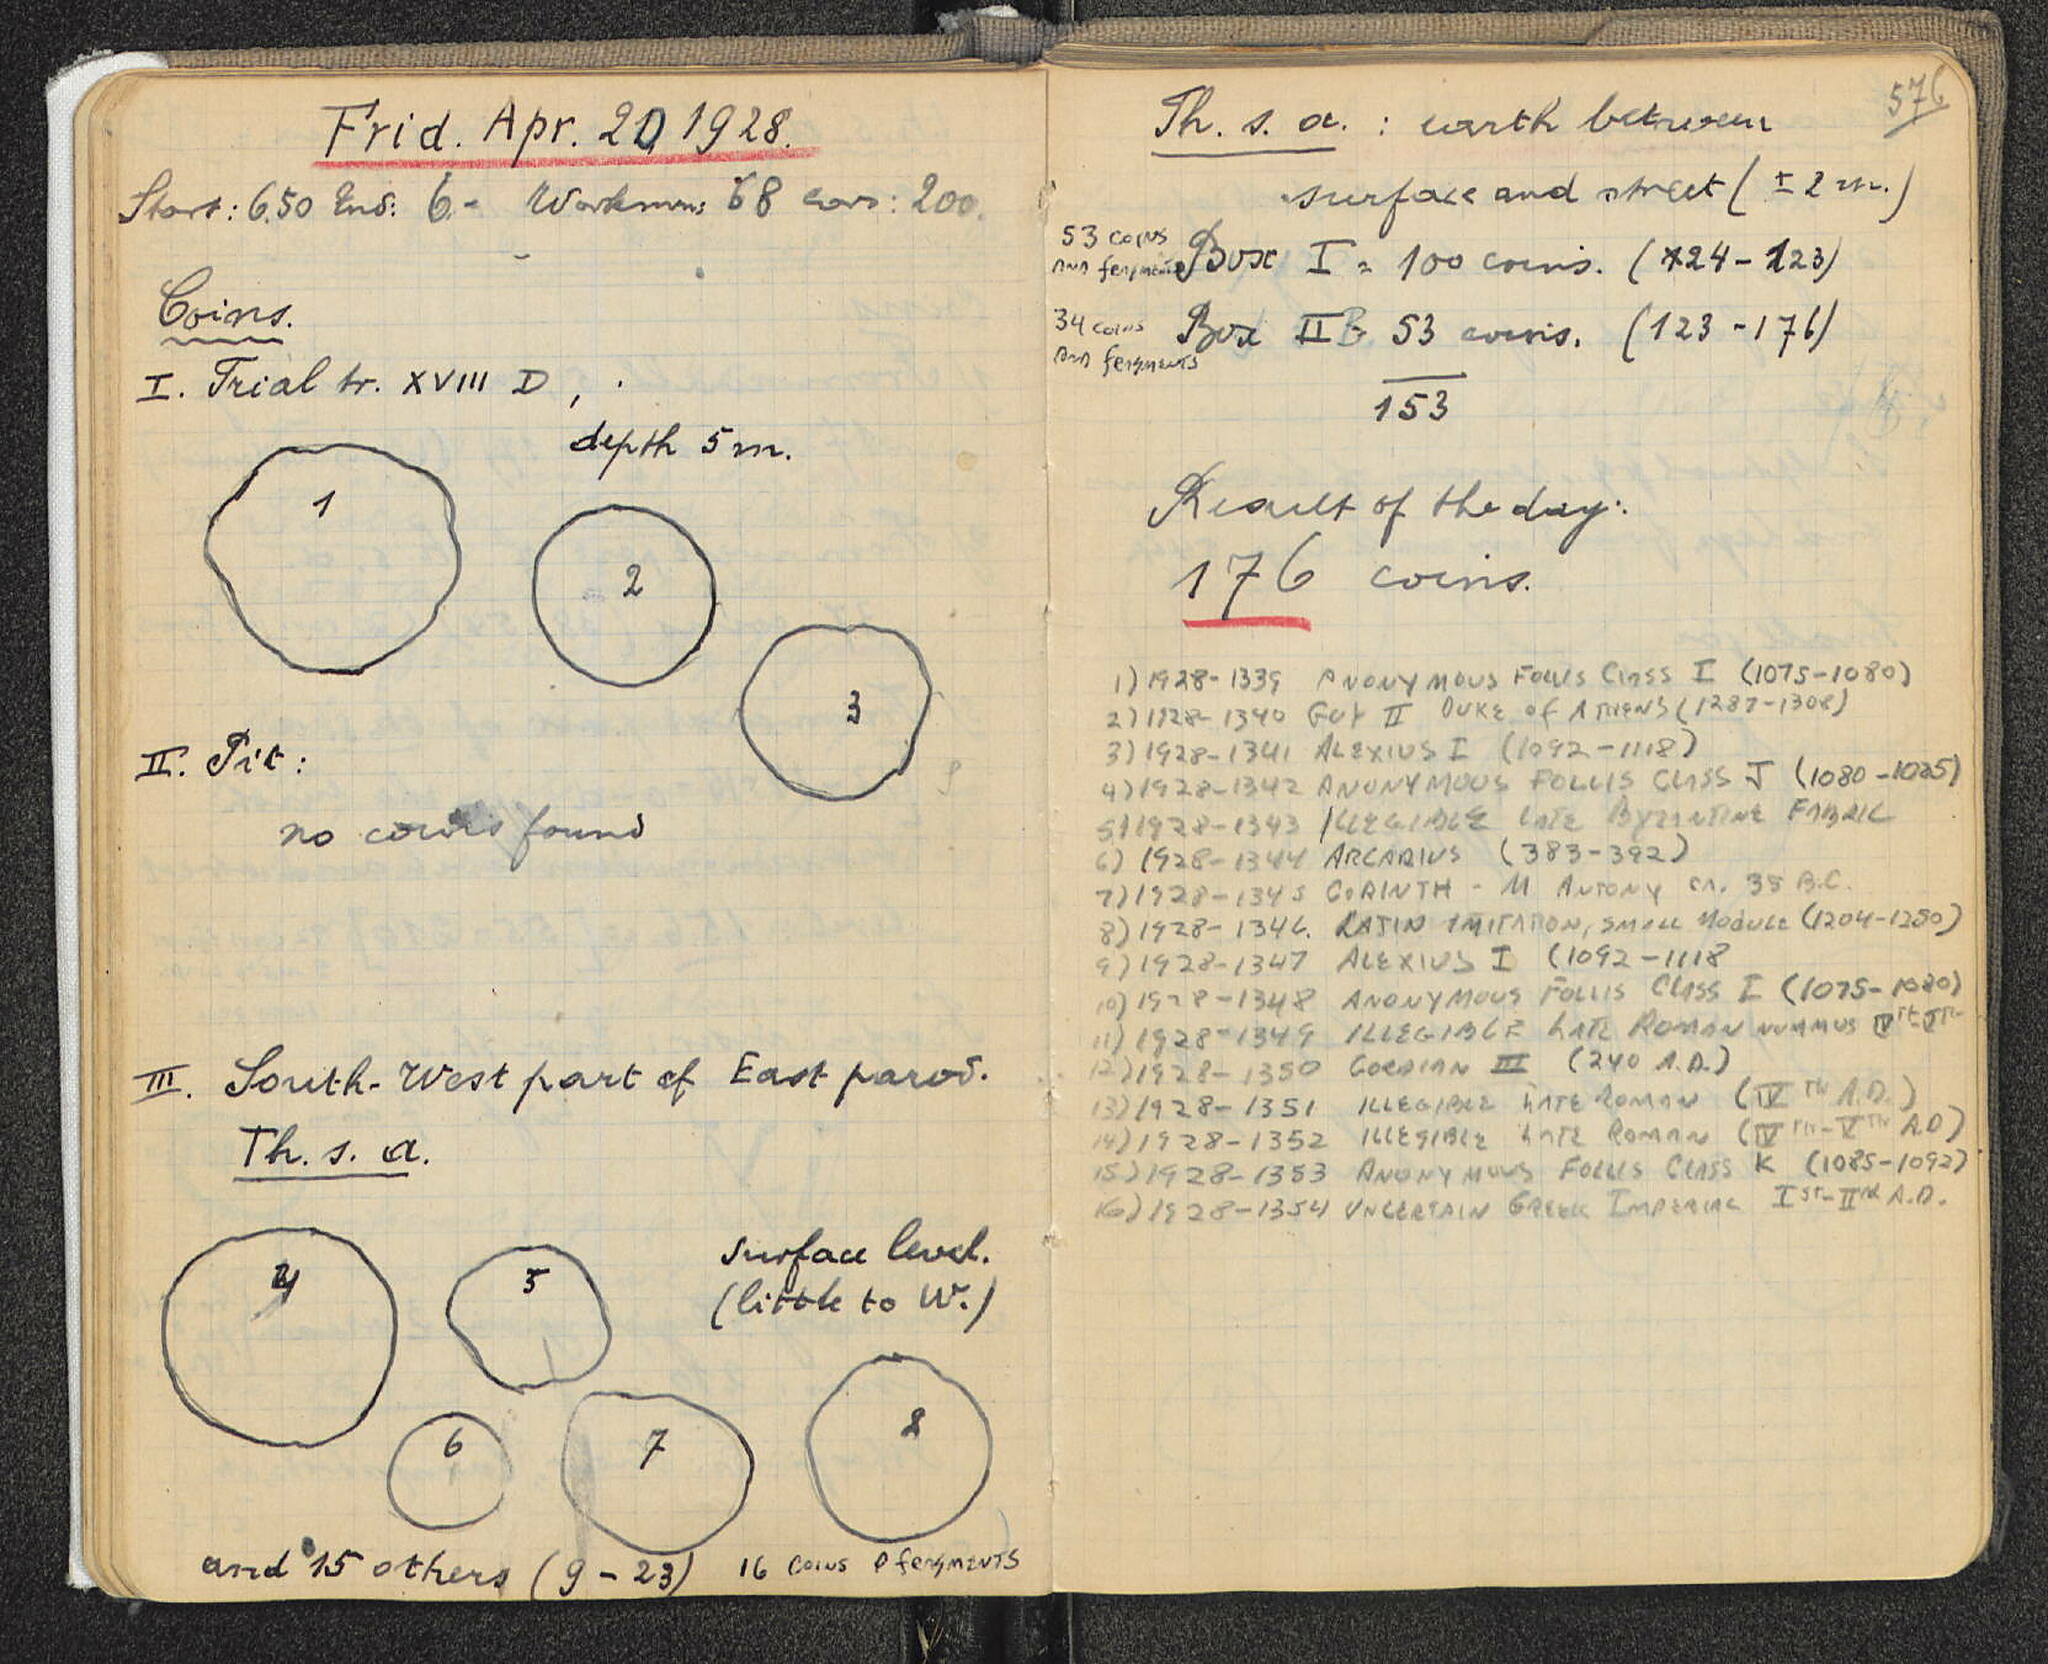 Frid. Apr. 20 1928.
Start: 6.50 End: 6.- Workmen: 68 cars: 200.
Coins.
I. Trial tr. XVIII D,
depth 5 m.
1
2
3
II. Pit:
no coins found
III. South-West part of East parod.
Th. s. a.
4
5
surface level.
(little to W.)
6
7
8
and 15 others (9-23) 16 coins & fragments
576
Th. s. a. : earth between
surface and street (± 2 m.)
53 coins
and fragments
Box I = 100 coins. (24-123)
34 coins
and fragments
Box II = 53 coins. (123-176)
153
Result of the day:
176 coins.
1) 1928-1339 Anonymous Follis Class I (1075-1080)
2) 1928-1340 Guy II Duke of Athens (1287-1308)
3) 1928-1341 Alexius I (1092-1118)
4) 1928-1342 Anonymous Follis Class J (1080-1085)
5) 1928-1343 Illegible Late Byzantine Fabric
6) 1928-1344 Arcadius (383-392)
7) 1928-1345 Corinth - M Antony ca. 38 B.C.
8) 1928-1346. Latin Imitation, small module (1204-1250)
9) 1928-1347 Alexius I (1092-1118
10) 1928-1348 Anonymous Follis Class I (1075-1080)
11) 1928-1349 Illegible Late Roman nummus IVth-Vth
12) 1928-1350 Gordian III (240 A.D.)
13) 1928-1351 Illegible Late Roman (IVth A.D.)
14) 1928-1352 Illegible Late Roman (IVth-Vth A.D)
15) 1928-1353 Anonymous Follis Class K (1085-1092)
16) 1928-1354 Uncertain Greek Imperial Ist-IInd A.D.